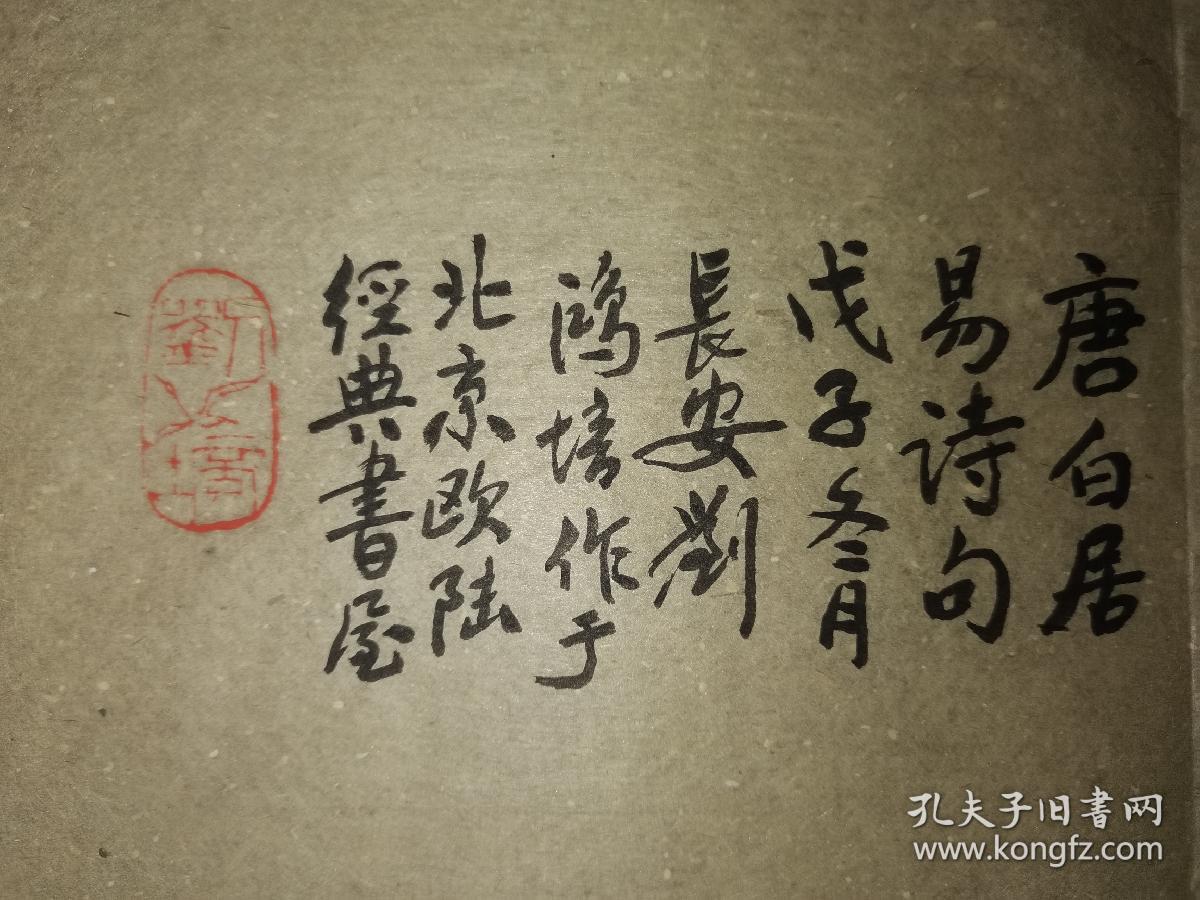 唐白居
易詩句
戊子冬月
長安劉
鴻培作于
北京欧陆
經典書屋
孔夫子旧书网
www.kongfz.com